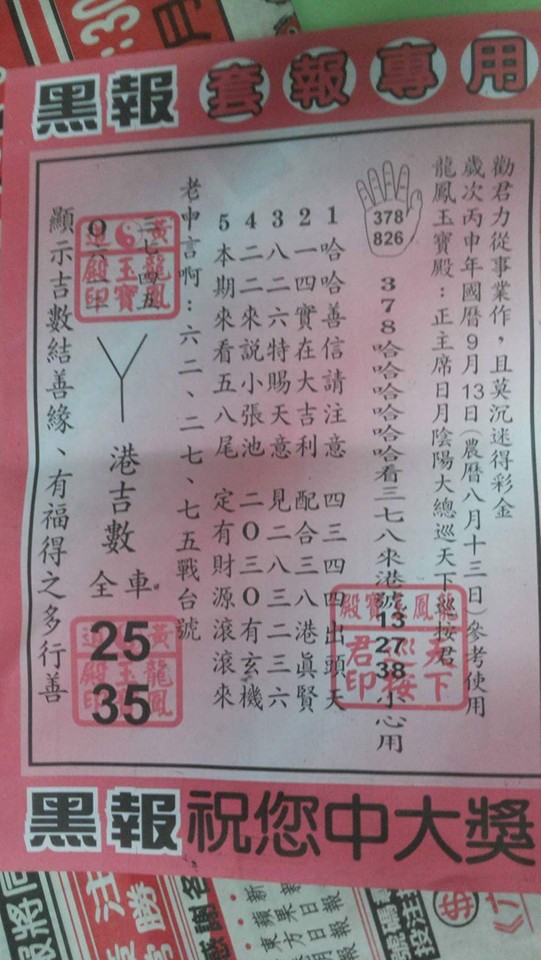 黑報 套報專用
勸君力從事業作，且莫沉迷得彩金
歲次丙申年國曆9月13日（農曆八月十三日）參考使用
龍鳳玉寶殿：正主席日月陰陽大總巡天下巡按君
378
826
378哈哈哈哈哈哈看三七八來港號13 27 38小心用
1哈哈善信請注意 四三四四出頭天
2一四實在大吉利 配合三八港真賢
3八二六特賜天意 見二八三二三六
4二二來說小張池 二O三O有玄機
5本期來看五八尾 定有財源滾滾來
老申言啊：六二、二七、七五戰台號
三七四五
港吉數
全車
25
35
顯示吉數結善緣、有福得之多行善
黃龍鳳
玉寶
殿印
龍鳳玉寶殿
天下
巡按
君印
黃龍鳳
玉寶
殿印
黑報祝您中大獎
:30
月
注
勝
感謝
新
蘋果日報
東方日報
投注